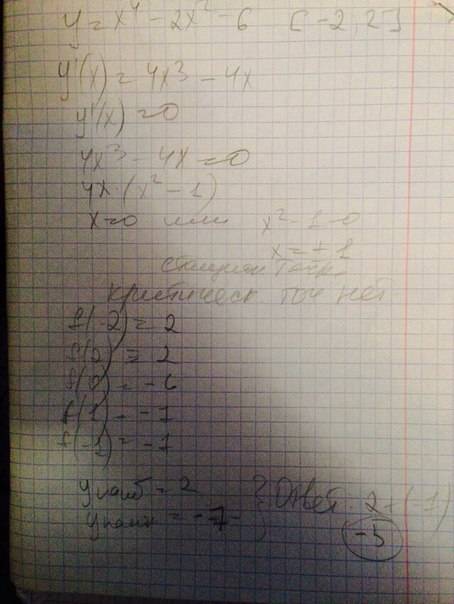 y = x⁴ - 2x² - 6 [-2, 2]
y'(x) = 4x³ - 4x
y'(x) = 0
4x³ - 4x = 0
4x·(x² - 1)
x=0 или x² - 1 = 0
x = ± 1
стацион точк
критическ. точ нет
f(-2) = 2
f(2) = 2
f(0) = -6
f(1) = -7
f(-1) = -7
y наиб = 2
y наим = -7
Ответ 2 + (-7)
-5